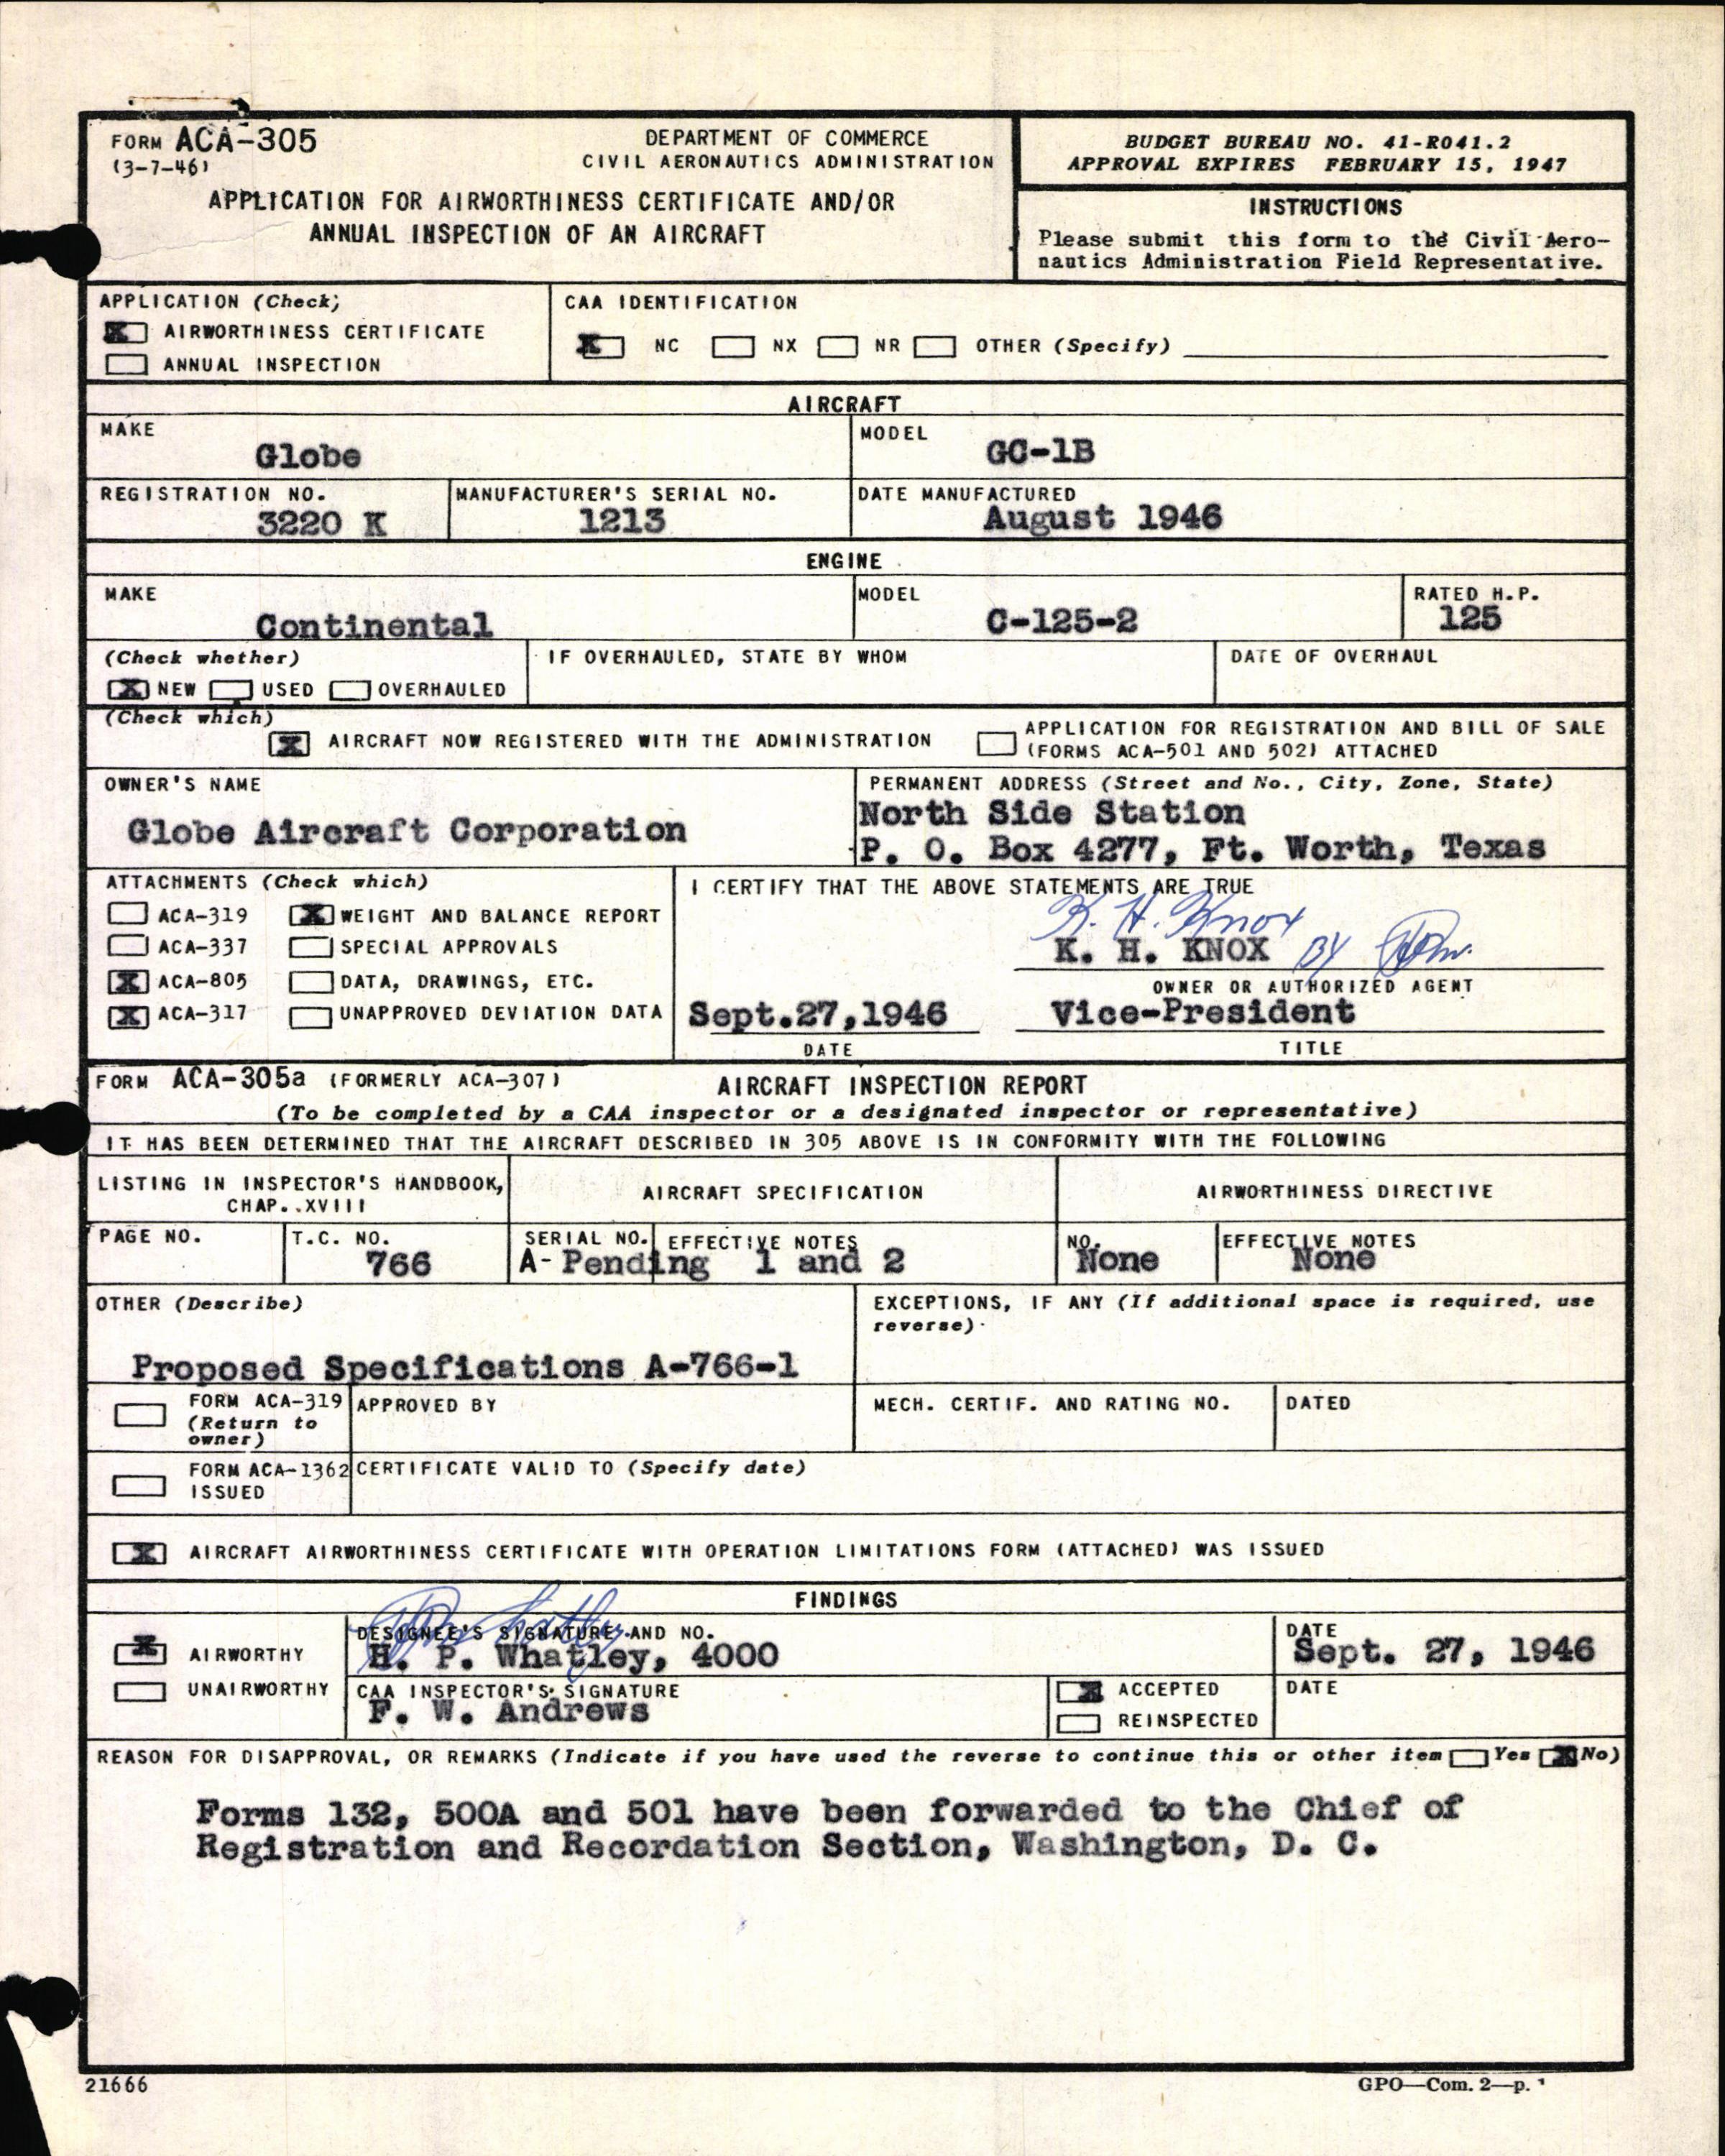 FORM ACA-305
(3-7-46)
DEPARTMENT OF COMMERCE
CIVIL AERONAUTICS ADMINISTRATION
APPLICATION FOR AIRWORTHINESS CERTIFICATE AND/OR
ANNUAL INSPECTION OF AN AIRCRAFT
BUDGET BUREAU NO. 41-R041.2
APPROVAL EXPIRES FEBRUARY 15, 1947
INSTRUCTIONS
Please submit this form to the Civil Aero-
nautics Administration Field Representative.
APPLICATION (Check)
X AIRWORTHINESS CERTIFICATE
ANNUAL INSPECTION
CAA IDENTIFICATION
X NC NX NR OTHER (Specify)
AIRCRAFT
MAKE
Globe
MODEL
GC-1B
REGISTRATION NO.
3220 K
MANUFACTURER'S SERIAL NO.
1213
DATE MANUFACTURED
August 1946
ENGINE
MAKE
Continental
MODEL
C-125-2
RATED H.P.
125
(Check whether)
X NEW USED OVERHAULED
IF OVERHAULED, STATE BY WHOM
DATE OF OVERHAUL
(Check which)
X AIRCRAFT NOW REGISTERED WITH THE ADMINISTRATION
APPLICATION FOR REGISTRATION AND BILL OF SALE
(FORMS ACA-501 AND 502) ATTACHED
OWNER'S NAME
Globe Aircraft Corporation
PERMANENT ADDRESS (Street and No., City, Zone, State)
North Side Station
P. O. Box 4277, Ft. Worth, Texas
ATTACHMENTS (Check which)
ACA-319 X WEIGHT AND BALANCE REPORT
ACA-337 SPECIAL APPROVALS
X ACA-805 DATA, DRAWINGS, ETC.
X ACA-317 UNAPPROVED DEVIATION DATA
I CERTIFY THAT THE ABOVE STATEMENTS ARE TRUE
K. H. Knox
K. H. KNOX BY
OWNER OR AUTHORIZED AGENT
Sept.27,1946 Vice-President
DATE TITLE
FORM ACA-305a (FORMERLY ACA-307) AIRCRAFT INSPECTION REPORT
(To be completed by a CAA inspector or a designated inspector or representative)
IT HAS BEEN DETERMINED THAT THE AIRCRAFT DESCRIBED IN 305 ABOVE IS IN CONFORMITY WITH THE FOLLOWING
LISTING IN INSPECTOR'S HANDBOOK,
CHAP. XVIII
AIRCRAFT SPECIFICATION
AIRWORTHINESS DIRECTIVE
PAGE NO.
T.C. NO.
766
SERIAL NO. EFFECTIVE NOTES
A- Pending 1 and 2
NO.
None
EFFECTIVE NOTES
None
OTHER (Describe)
Proposed Specifications A-766-1
EXCEPTIONS, IF ANY (If additional space is required, use
reverse)
FORM ACA-319
(Return to
owner)
APPROVED BY
MECH. CERTIF. AND RATING NO.
DATED
FORM ACA-1362
ISSUED
CERTIFICATE VALID TO (Specify date)
X AIRCRAFT AIRWORTHINESS CERTIFICATE WITH OPERATION LIMITATIONS FORM (ATTACHED) WAS ISSUED
FINDINGS
X AIRWORTHY
UNAIRWORTHY
DESIGNEE'S SIGNATURE AND NO.
H. P. Whatley, 4000
DATE
Sept. 27, 1946
CAA INSPECTOR'S SIGNATURE
F. W. Andrews
X ACCEPTED
REINSPECTED
DATE
REASON FOR DISAPPROVAL, OR REMARKS (Indicate if you have used the reverse to continue this or other item Yes X No)
Forms 132, 500A and 501 have been forwarded to the Chief of
Registration and Recordation Section, Washington, D. C.
21666
GPO—Com. 2—p.